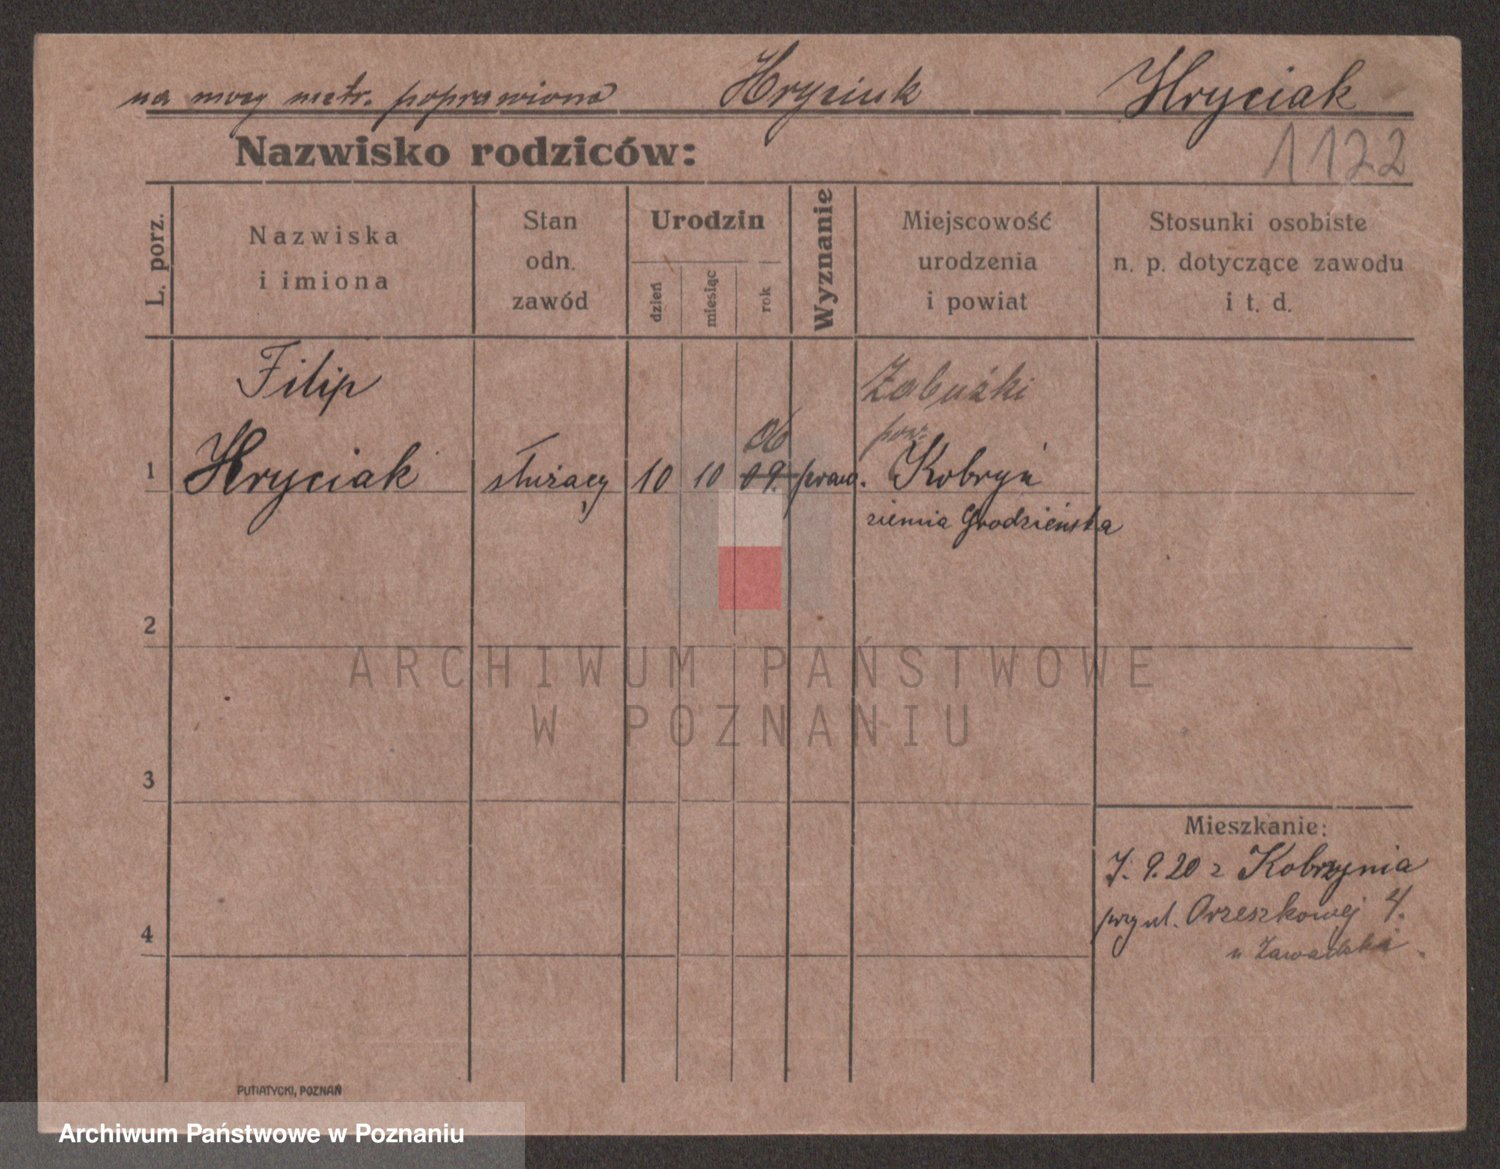 na mocy metr. poprawiono Hryciuk Hryciak
Nazwisko rodziców:
1122
L. porz.
Nazwiska
i imiona
Stan
odn.
zawód
Urodzin
dzień
miesiąc
rok
Wyznanie
Miejscowość
urodzenia
i powiat
Stosunki osobiste
n. p. dotyczące zawodu
i t. d.
Filip Zabużki
06 pow.
1 Hryciak służący 10 10 09. praw. Kobryń
ziemia Grodzieńska
2
ARCHIWUM PAŃSTWOWE
W POZNANIU
3
Mieszkanie:
7. 9. 20 z Kobrzynia
4 przy ul. Orzeszkowej 4.
u Zawadzki
PUTIATYCKI, POZNAŃ
Archiwum Państwowe w Poznaniu